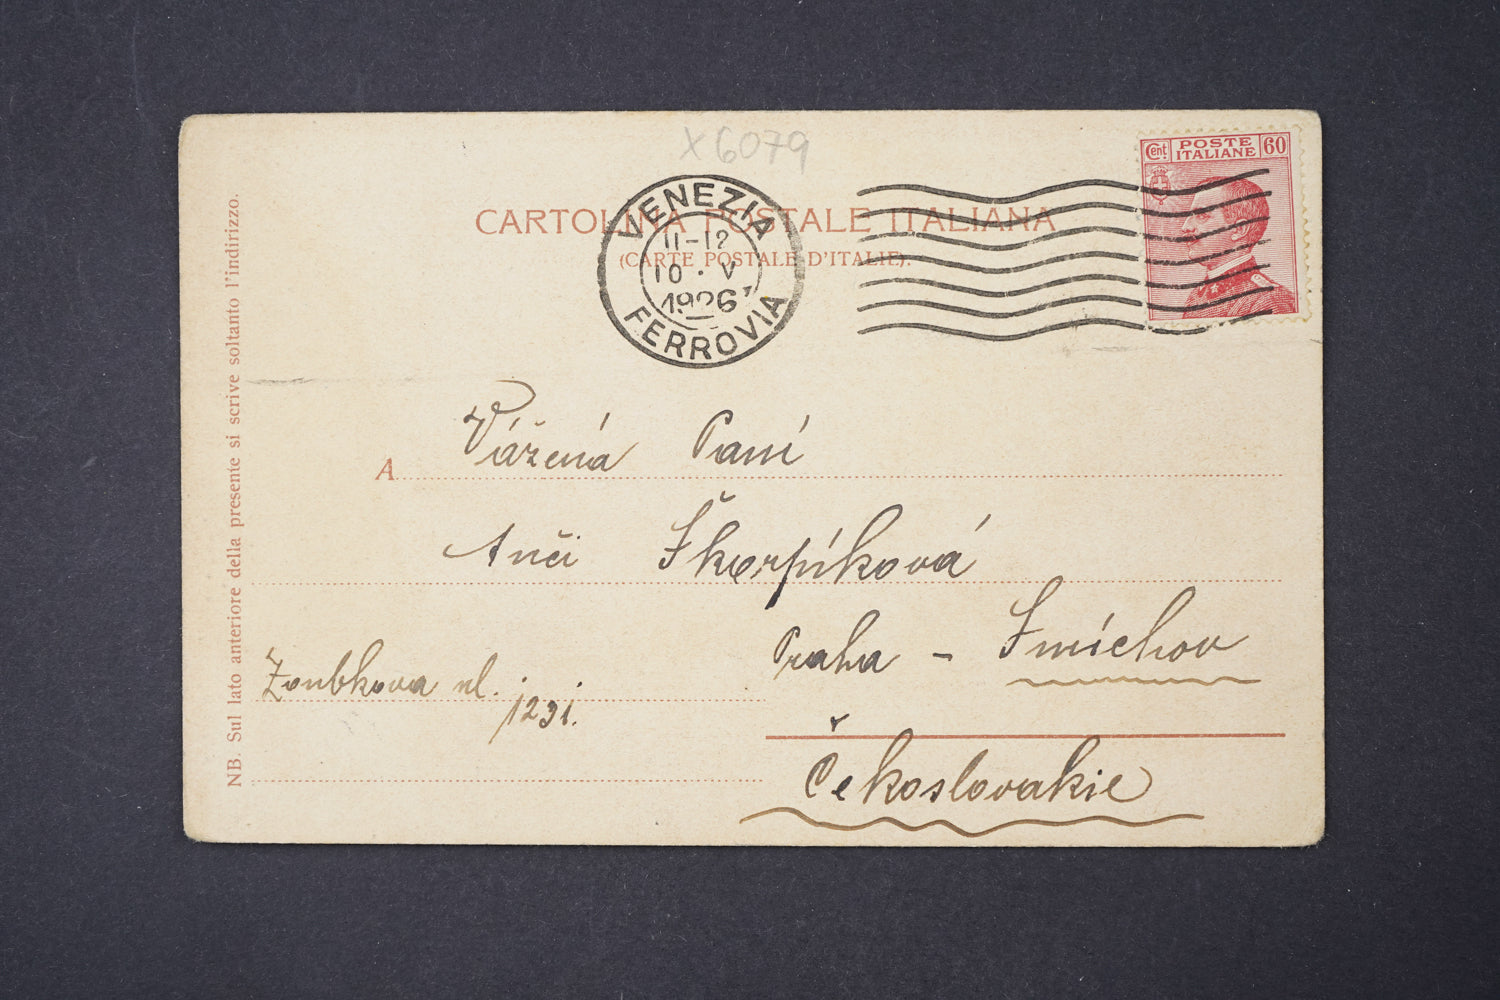 X6079
Cent POSTE ITALIANE 60
VENEZIA
11-12
10 · V
1926
FERROVIA
CARTOLINA POSTALE ITALIANA
(CARTE POSTALE D'ITALIE).
NB. Sul lato anteriore della presente si scrive soltanto l'indirizzo.
A Vážená Paní
Anči Škorpíková
Praha - Smíchov
Zoubkova ul.
1231.
Čekoslovakie